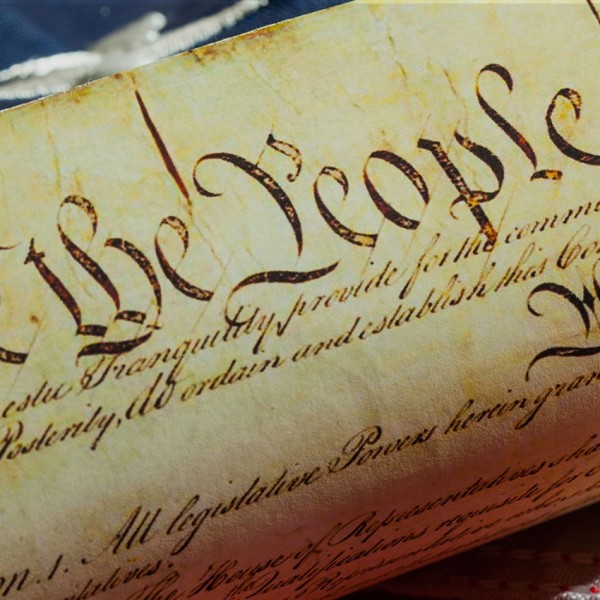 the People
estic Tranquility, provide for the commo
Posterity, do ordain and establish this Co
W
on. 1. All legislative Powers herein gran
ntatives.
The House of Representatives sha
Qualifications requisite for